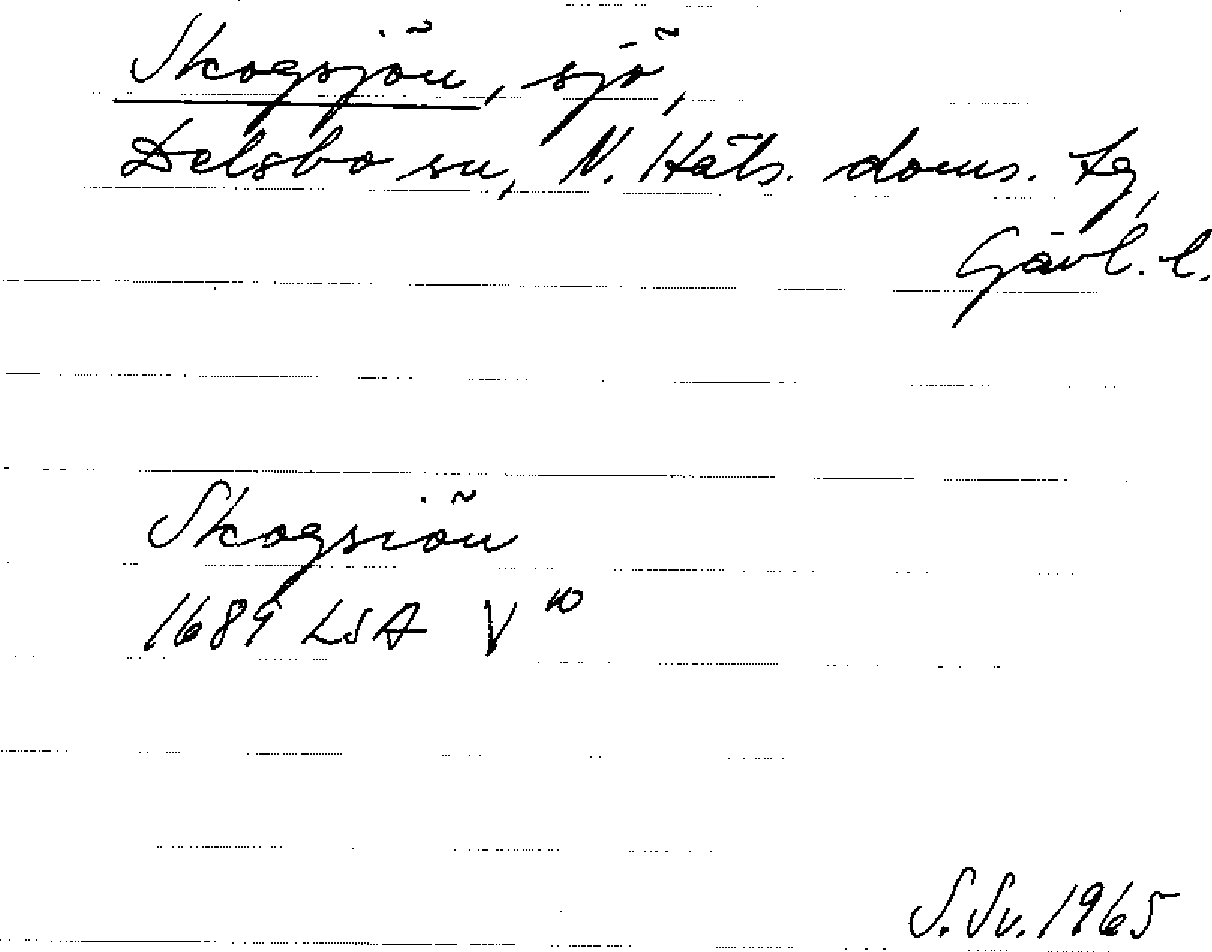 Skogsjön, sjö,
Delsbo sn, N. Häls. doms. tg,
Gävl. l.
Skogsiön
1689 LSA V 10
S. Sv. 1965